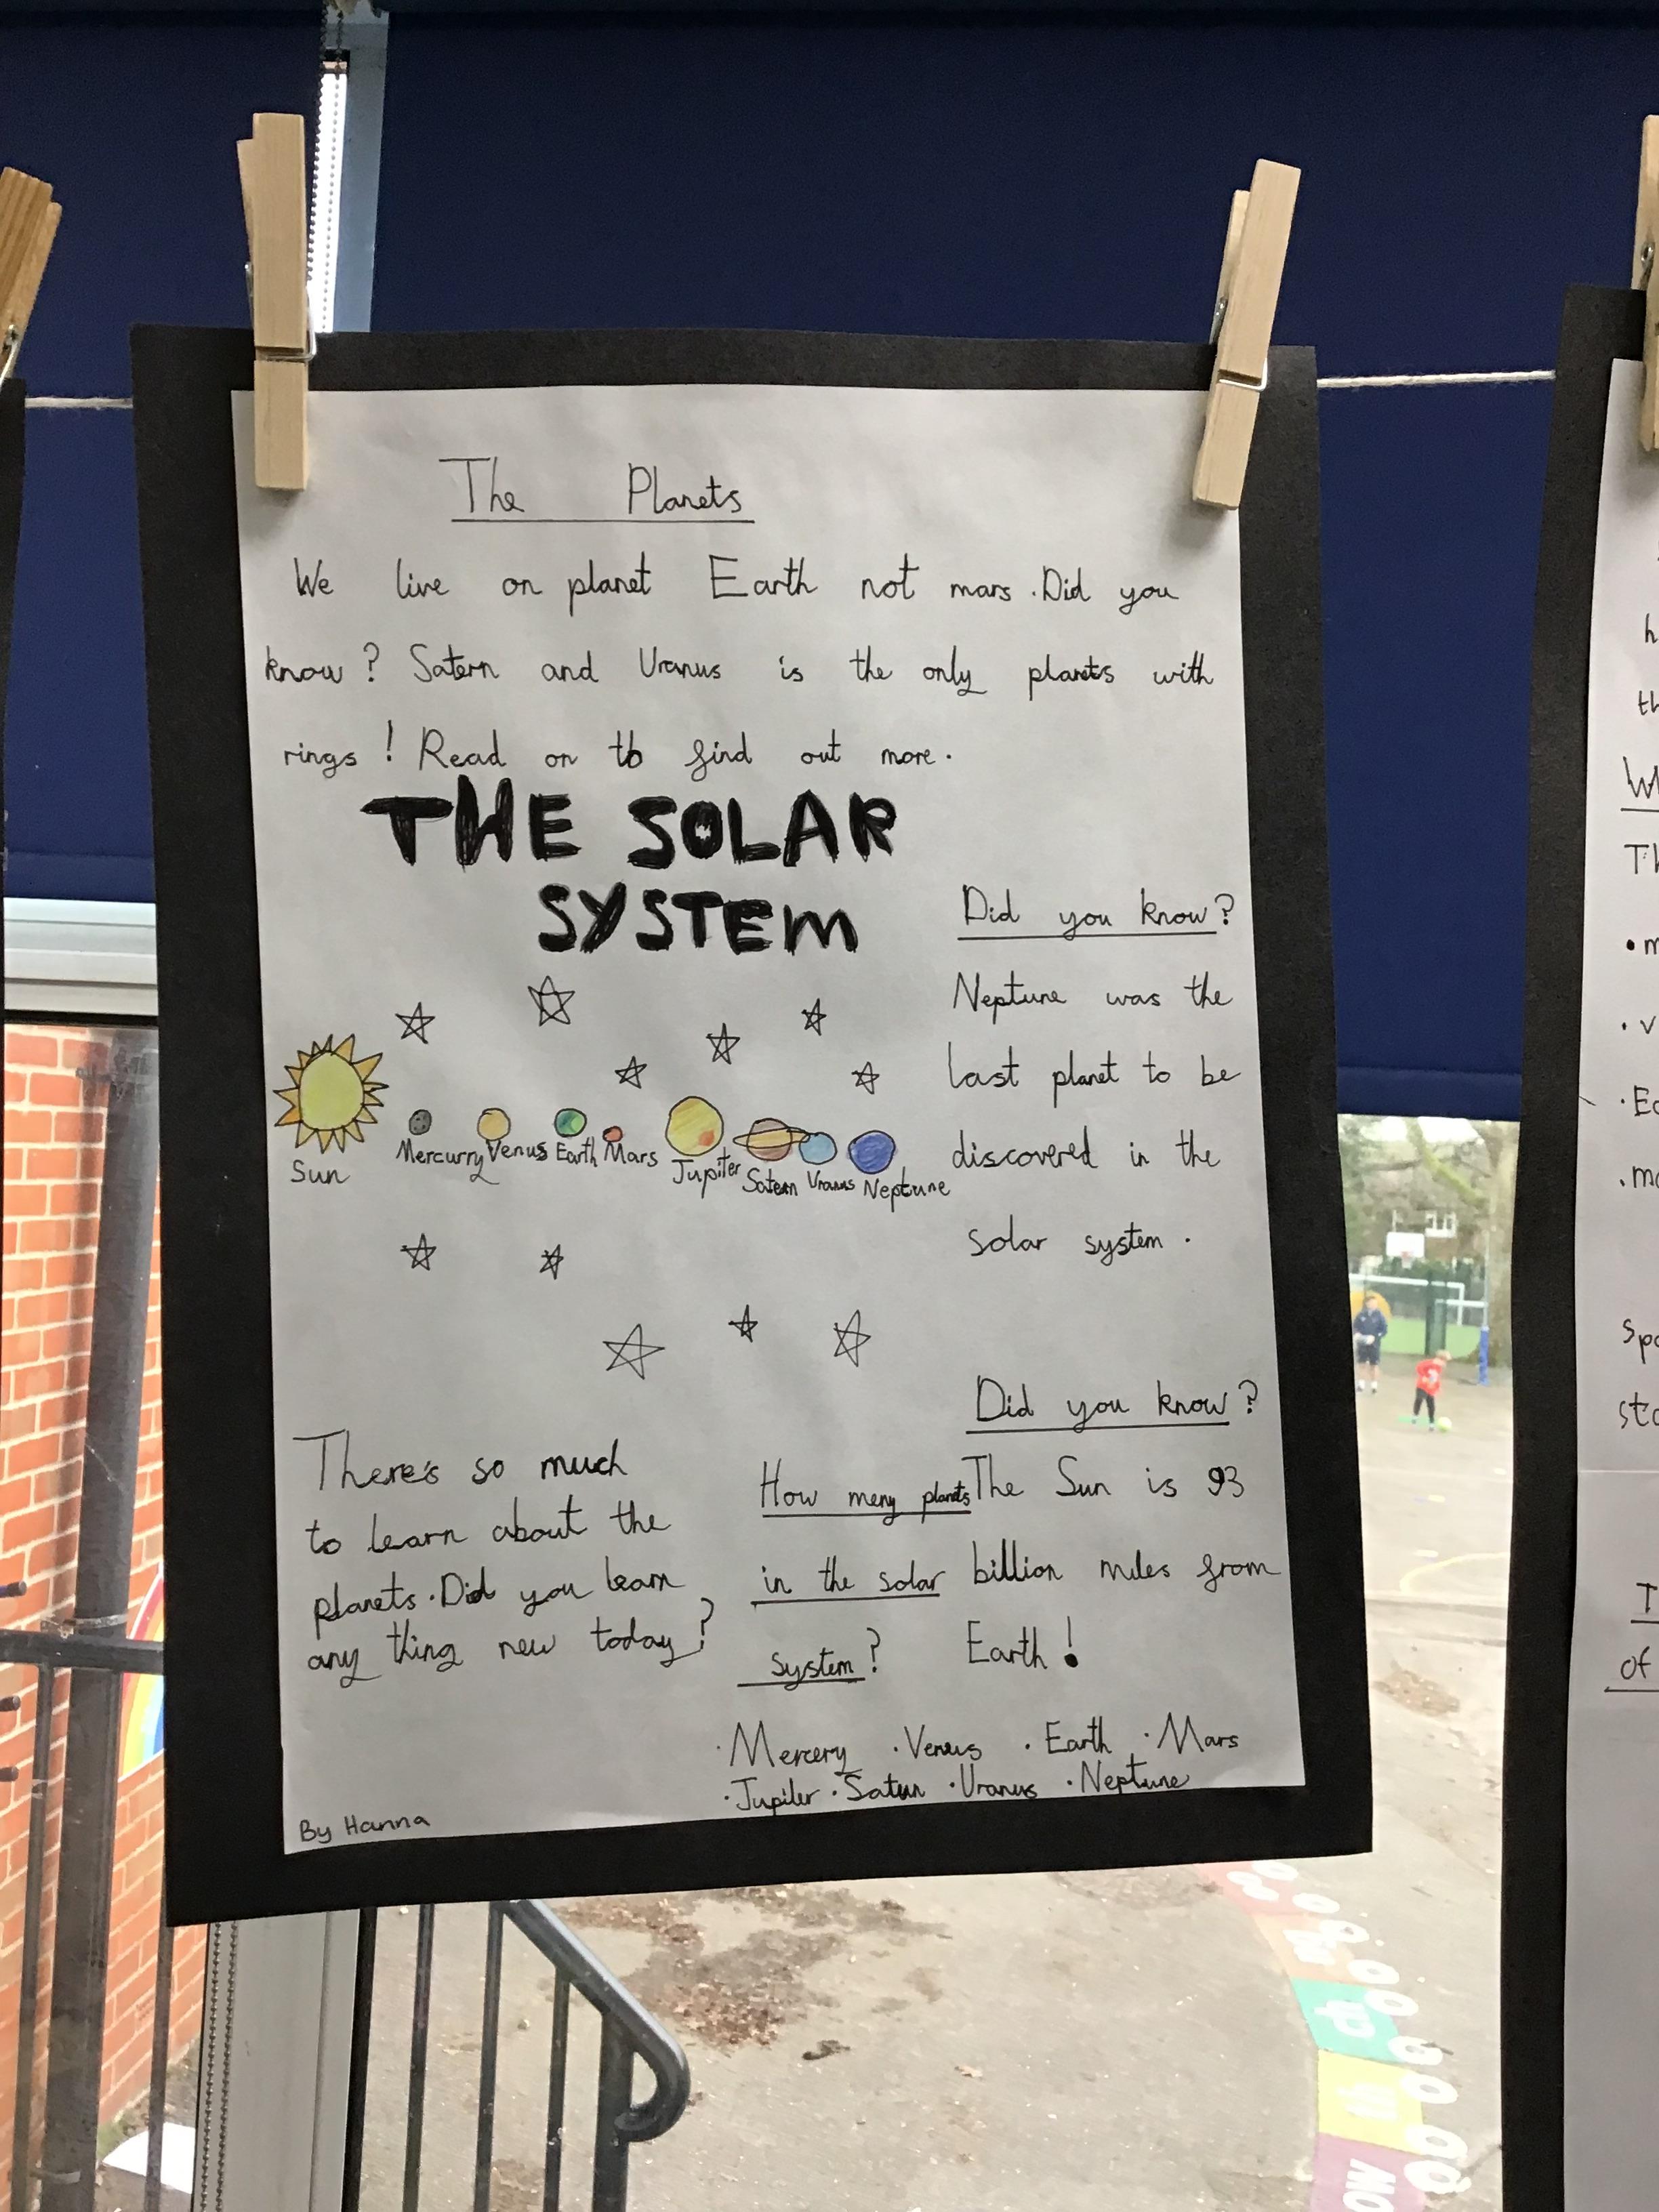 The Planets
We live on planet Earth not mars. Did you
know? Satern and Uranus is the only planets with
rings! Read on to find out more.
THE SOLAR
SYSTEM
Sun
Mercurry
Venus
Earth
Mars
Jupiter
Satern
Uranus
Neptune
Did you know?
Neptune was the
last planet to be
discovered in the
solar system.
Did you know?
The Sun is 93
billion miles from
Earth!
There's so much
to learn about the
planets. Did you learn
any thing new today?
How meny planets
in the solar
system?
· Mercery · Venus · Earth · Mars
· Jupiter · Saturn · Uranus · Neptune
By Hanna
of
ch
th
ow